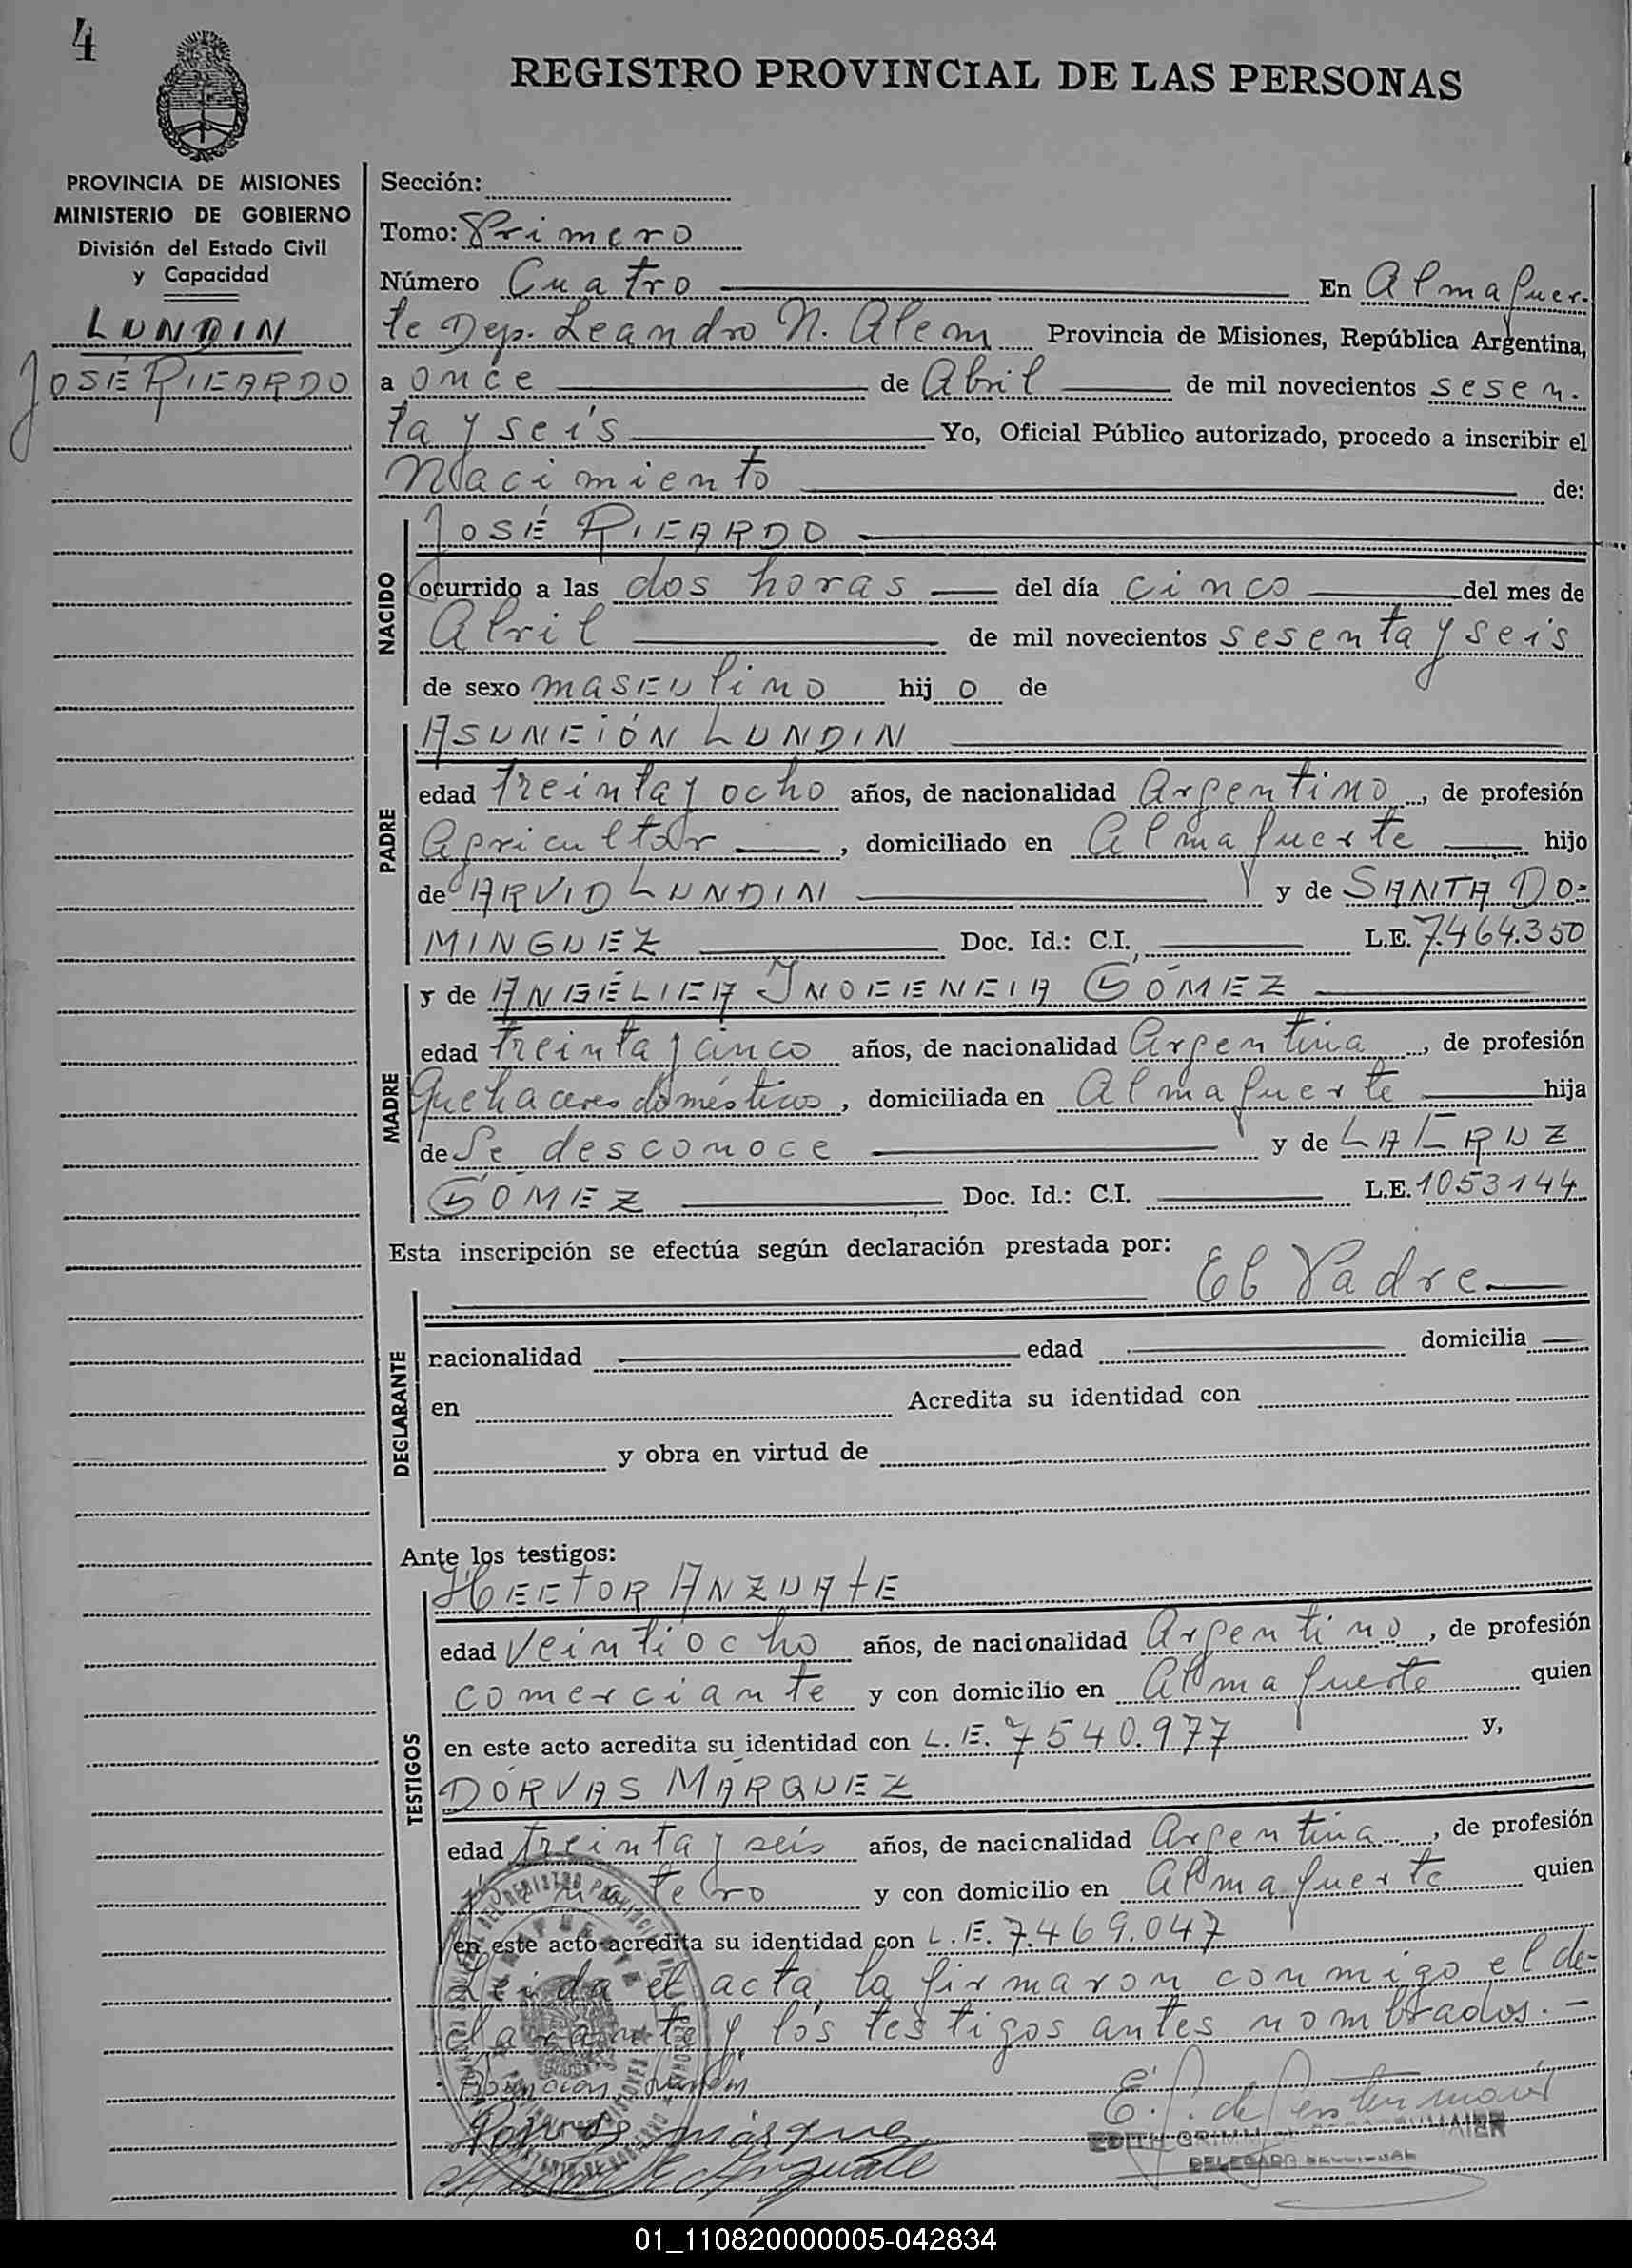 4
REGISTRO PROVINCIAL DE LAS PERSONAS
PROVINCIA DE MISIONES
MINISTERIO DE GOBIERNO
División del Estado Civil
y Capacidad
LUNDIN
JOSÉ RICARDO
Sección:
Tomo: Primero
Número Cuatro En Almafuer-
te Dep. Leandro N. Alem Provincia de Misiones, República Argentina,
a once de Abril de mil novecientos sesen-
ta y seis Yo, Oficial Público autorizado, procedo a inscribir el
Nacimiento de:
NACIDO
JOSÉ RICARDO
ocurrido a las dos horas del día cinco del mes de
Abril de mil novecientos sesenta y seis
de sexo masculino hijo de
PADRE
ASUNCIÓN LUNDIN
edad treinta y ocho años, de nacionalidad Argentino, de profesión
Agricultor, domiciliado en Almafuerte hijo
de ARVID LUNDIN y de SANTA DO-
MINGUEZ Doc. Id.: C.I. L.E. 7.464.350
MADRE
y de ANGÉLICA INOCENCIA GÓMEZ
edad treinta y cinco años, de nacionalidad Argentina, de profesión
Quehaceres domésticos, domiciliada en Almafuerte hija
de Se desconoce y de LA CRUZ
GÓMEZ Doc. Id.: C.I. L.E. 1053144
Esta inscripción se efectúa según declaración prestada por:
El Padre
DECLARANTE
nacionalidad edad domicilia
en Acredita su identidad con
y obra en virtud de
Ante los testigos:
TESTIGOS
HECTOR ANZUATE
edad veintiocho años, de nacionalidad Argentino, de profesión
comerciante y con domicilio en Almafuerte quien
en este acto acredita su identidad con L.E. 7540.977 y,
DORVAS MÁRQUEZ
edad treinta y seis años, de nacionalidad Argentina, de profesión
y con domicilio en Almafuerte quien
en este acto acredita su identidad con L.E. 7.469.047
Leída el acta, la firmaron conmigo el de-
clarante y los testigos antes nombrados.-
Asuncion Lundin
EDITH
DELEGADO SECCIONAL
01_110820000005-042834